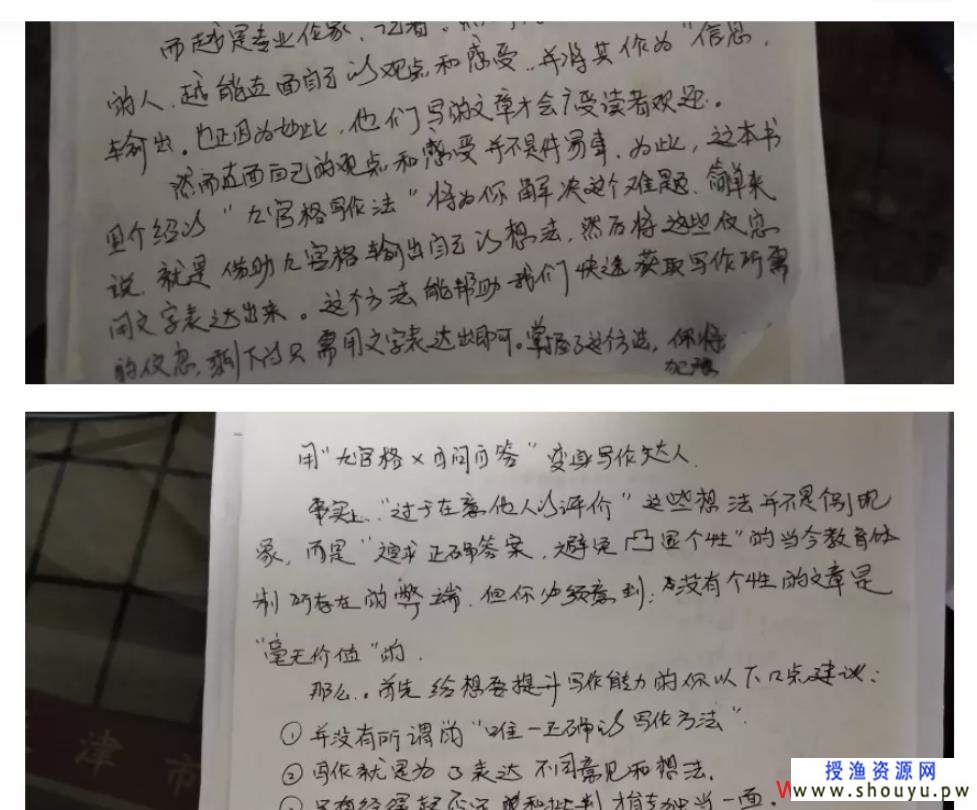 而越是专业作家、记者、
的人,越能直面自己的观点和感受,并将其作为“信息”
输出。也正因为如此,他们写的文章才会广受读者欢迎。
然而直面自己的观点和感受并不是件易事,为此,这本书
里介绍的“九宫格写作法”将为你解决这个难题,简单来
说,就是借助九宫格输出自己的想法,然后将这些信息
用文字表达出来。这个方法能帮助我们快速获取写作所需
的信息,剩下的只需用文字表达出即可。掌握了这个方法,你将
用“九宫格×自问自答”变身写作达人.
事实上,“过于在意他人的评价”这些想法并不是个别现
象,而是“追求正确答案,避免凸显个性”的当今教育体
制所存在的弊端,但你必须意到:没有个性的文章是
“毫无价值”的.
那么,首先给想要提升写作能力的你以下几点建议:
①并没有所谓的“唯一正确的写作方法”.
②写作就是为了表达不同意见和想法.
③只有经得起否定和批判才能独当一面.
津市
授渔资源网
www.shouyu.pw